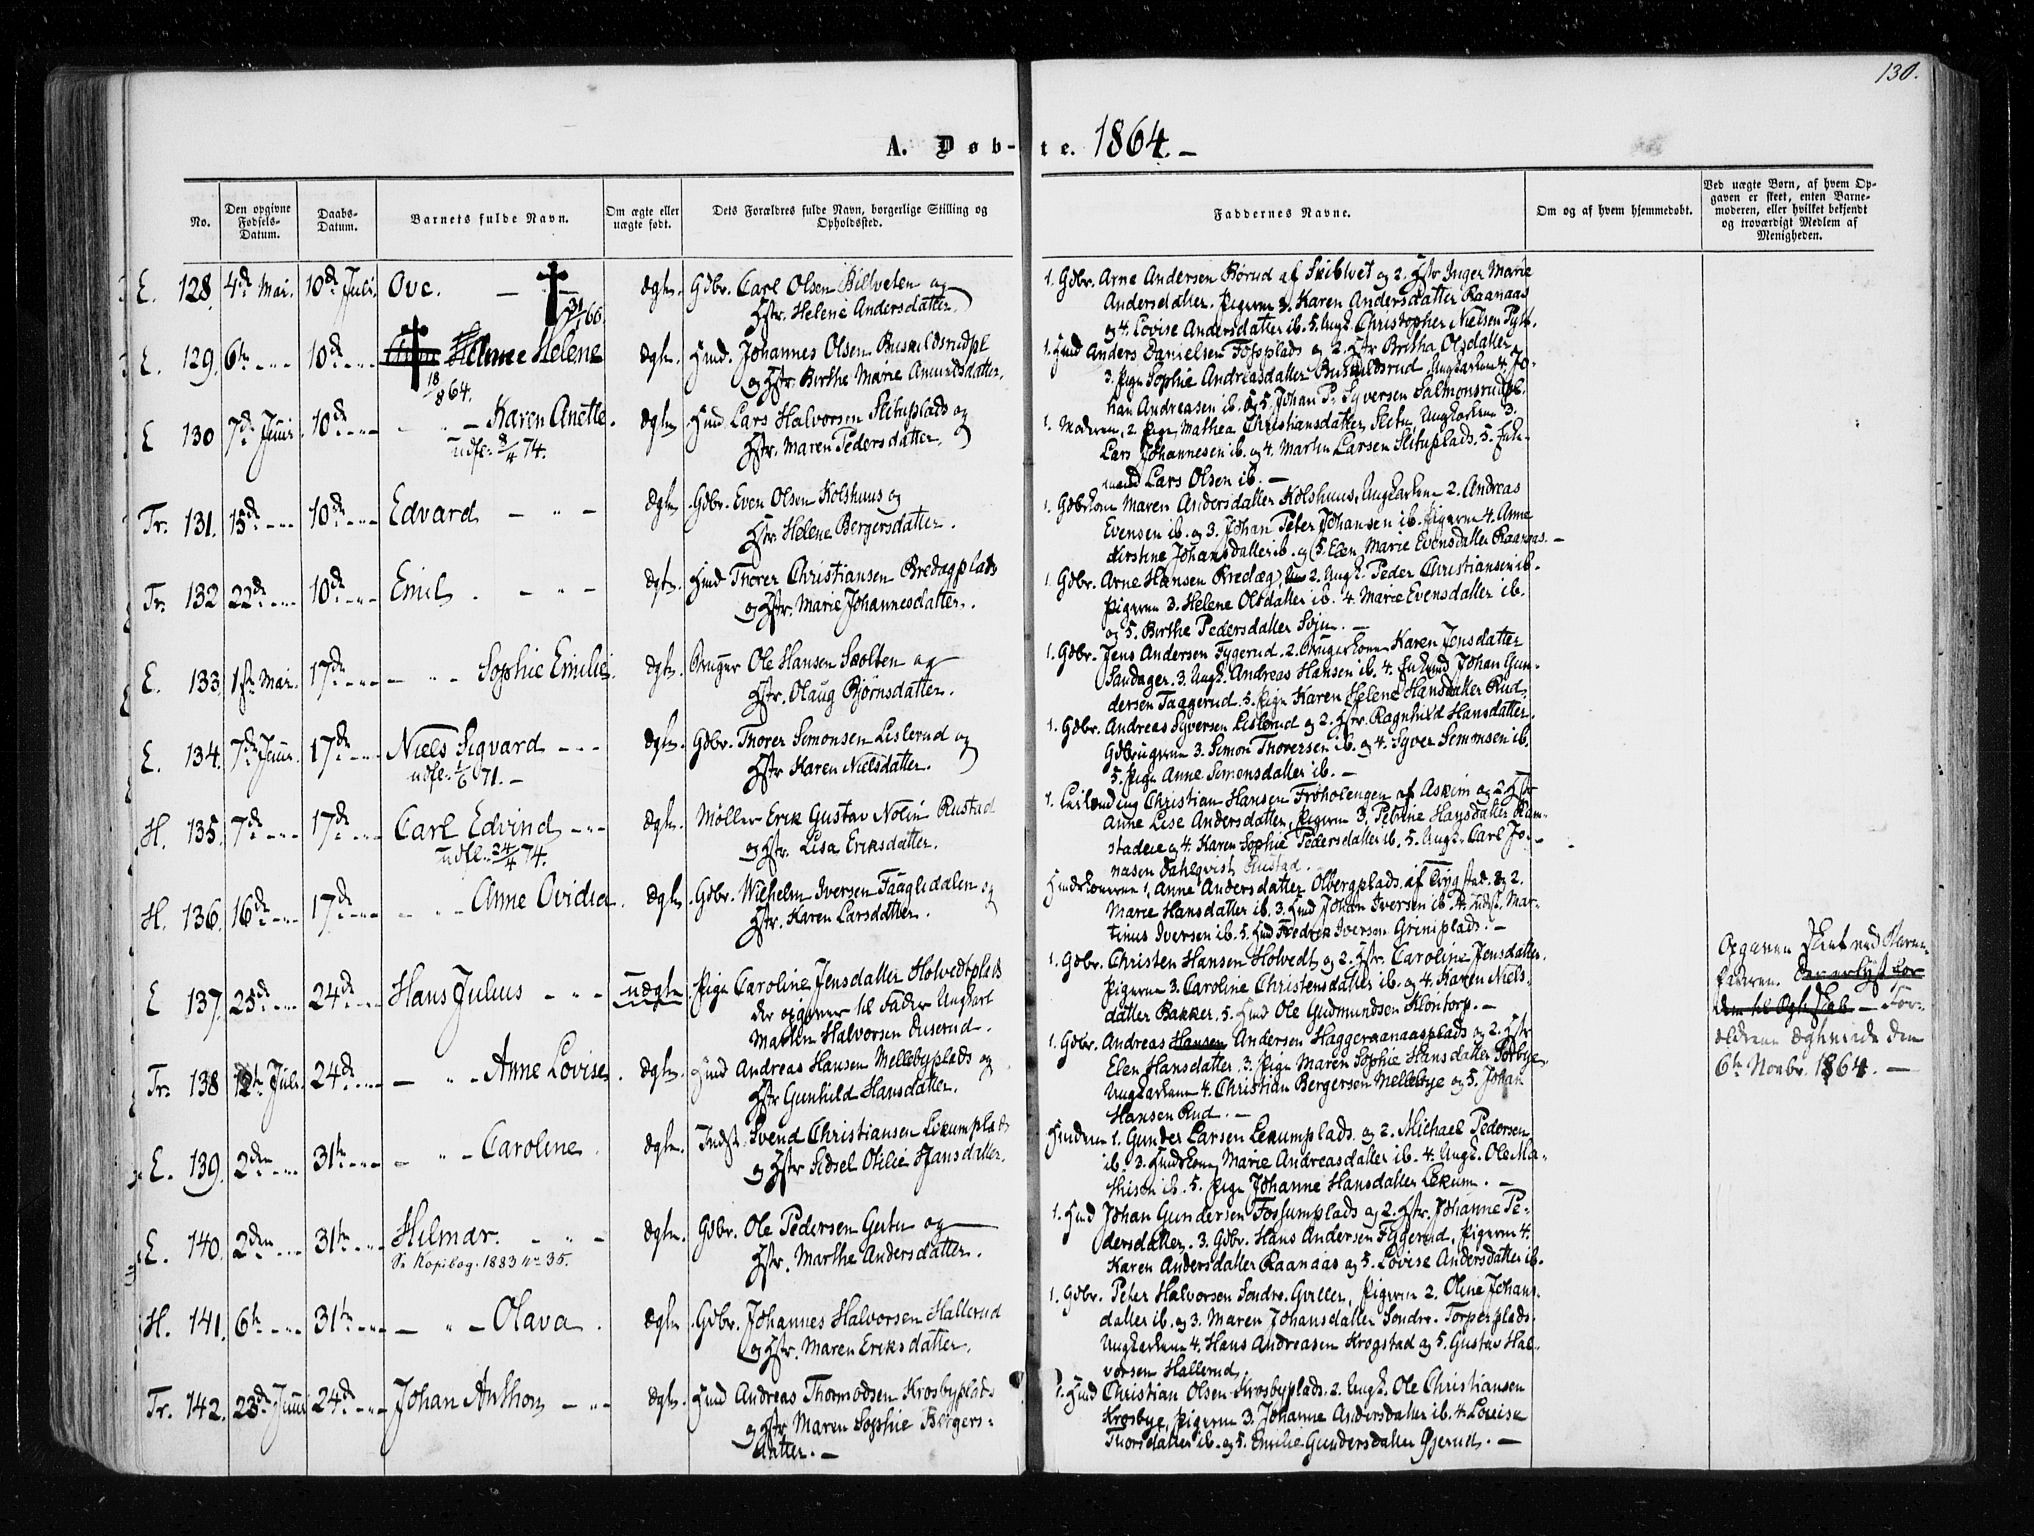 130.
A. Døb-te. 1864.-
No.
Den opgivne Fødsels-Datum.
Daabs-Datum.
Barnets fulde Navn.
Om ægte eller uægte født.
Dets Forældres fulde Navn, borgerlige Stilling og Opholdssted.
Faddernes Navne.
Om og af hvem hjemmedøbt.
Ved uægte Børn, af hvem Opgaven er skeet, enten Barnemoderen, eller hvilket bekjendt og troværdigt Medlem af Menigheden.
E. 128. 4de Mai. 10de Juli. Ove. ægte. Gdbr. Carl Olsen og
Hstr. Helene Andersdatter.
1. Gdbr. Arne Andersen Børud af Skiblvet og 2. Hstr Inger Marie
Andersdatter. Pigerne 3. Karen Andersdatter Raanaas
og 4. Lovise Andersdatter ib. 5. Ungk. Christopher Nielsen
E. 129. 6te 10de Helene ægte. Hmd. Johannes Olsen
og Hstr. Berthe Marie Amundsdatter.
18/8 64.
1. Hmd Anders Danielsen Fossplads og 2. Hstr Bertha Olsdatter
3. Pige Sophie Andreasdatter Buskildsrud Ungkarlene 4. Jo-
han Andreasen ib. og 5. Johan P. Syversen
E 130 7de Juni 10de Karen Anette. ægte Hmd. Lars Halvorsen Sletuplads og
Hstr. Maren Pedersdatter.
udfr. 8/4 74.
1. Moderen, 2. Pige Mathea Christiansdatter Sletu, Ungkarlene 3.
Lars Johannesen ib. og 4. Martin Larsen Sletuplads. 5. Enke-
mand Lars Olsen ib.
Tr. 131. 15de 10de Edvard ægte Gdbr. Even Olsen Kolshuus og
Hstr Helene Bergersdatter.
1. Gdbrkone Maren Andersdatter Kolshuus, Ungkarlene 2. Andreas
Evensen ib. og 3. Johan Peter Johansen ib. Pigerne 4. Anne
Kirstine Johansdatter ib. og 5. Elen Marie Evensdatter Raanaas.
Tr. 132 22de 10de Emil ægte. Hmd Thorer Christiansen Bredagplads
og Hstr. Marie Johannesdatter.
1. Gdbr. Arne Hansen Bredag, 2. Ungk. Peder Christiansen ib.
Pigerne 3. Helene Olsdatter ib. 4. Marie Evensdatter ib.
og 5. Berthe Pedersdatter
E. 133. 1ste Mai. 17de Sophie Emilie. ægte. Bruger Ole Hansen Skolten og
Hstr. Olaug Bjørnsdatter.
1. Gdbr. Jens Andersen Fygerud. 2. Brugerkone Karen Jensdatter
Sandager. 3. Ungk. Andreas Hansen ib. 4. Enkemd Johan Gun-
dersen Taagerud. 5. Pige Karen Helene Hansdatter Rud.
E. 134. 7de Juni. 17de Niels Sigvard ægte. Gdbr. Thorer Simonsen Lislerud og
udfr. 1/6 71. Hstr Karen Nielsdatter.
1. Gdbr. Andreas Syversen Lislerud og 2. Hstr. Ragnhild Hansdatter.
Gdbrugerne 3. Simon Thorersen ib. og 4. Syver Simonsen ib.
5. Pige Anne Simonsdatter ib.
H. 135. 7de 17de Carl Edvind ægte. Møller Erik Gustav Nolin Rustad
udfl. 24/4 74. og Hstr. Lisa Eriksdatter.
1. Leilænding Christian Hansen Frøholengen af Askim og 2. Hstr
Anne Lise Andersdatter, Pigerne 3. Petrine Hansdatter Ram-
stadeie og 4. Karen Sophie Pedersdatter ib. 5. Ungk. Carl Jo-
nasen Dahlqvist Rustad.
H. 136. 16de 17de Anne Ovidia. ægte Gdbr. Wilhelm Iversen Faaglidalen og
Hstr. Karen Larsdatter.
Hmdskonerne 1. Anne Andersdatter Olbergplads af Trygstad. og 2.
Marie Hansdatter ib. 3. Hmd Johan Iversen ib. 4. Indst. Mar-
tinus Iversen ib. 5. Hmd Fredrik Iversen Grimplads.
E 137. 25de 24de Hans Julius uægte Pige Caroline Jensdatter Holvedtplads
der opgiver til Fader Ungkarl
Martin Halvorsen Huserud.
1. Gdbr. Christen Hansen Holvedt og 2. Hstr. Caroline Jensdatter.
Pigerne 3. Caroline Christensdatter ib. og 4. Karen Niels-
datter Bakker. 5. Hmd Ole Gudmundsen Klontorp.
Opgaven skeet ved Barne-
faderen. For-
ældrene ægteviede den
6te Novbr. 1864.
Tr. 138 Juli. 24de Anne Lovise. ægte. Hmd Andreas Hansen Mellebyplads og
Hstr Gunhild Hansdatter.
1. Gdbr. Andreas Hansen Andersen Haggeraanaasplads og 2. Hstr
Elen Hansdatter. 3. Pige Maren Sophie Hansdatter Sørbye,
Ungkarlene 4. Christian Bergersen Mellebye og 5. Johan
Hansen Rud.
E. 139. 2den 31te Caroline ægte. Indst. Svend Christiansen Lekumplads
og Hstr Sidsel Otilie Hansdatter.
Hmdene 1. Gunder Larsen Lekumplads og 2. Michael Pedersen
ib. 3. Hmdskone Marie Andreasdatter ib. 4. Ungk. Ole Ma-
thisen ib. 5. Pige Johanne Hansdatter Lekum.
E. 140. 2den 31te Hilmar. ægte. Gdbr. Ole Pedersen og
Se Kopibog 1883 nr 35. Hstr. Marthe Andersdatter.
1. Hmd Johan Gundersen Fossumplads og 2. Hstr. Johanne Pe-
dersdatter. 3. Gdbr. Hans Andersen Fygerud, Pigerne 4.
Karen Andersdatter Raanaas og 5. Lovise Andersdatter ib.
H. 141. 6te 31te Olava ægte Gdbr. Johannes Halvorsen Hallerud
og Hstr. Maren Eriksdatter.
1. Gdbr. Peter Halvorsen Sondre Gviller, Pigerne 2. Oline Johans-
datter ib. og 3. Maren Johansdatter Sondre Torperplads.
Ungkarlene 4. Hans Andreasen Krogstad og 5. Gustav Hal-
vorsen Hallerud.
Tr. 142. 23de Juni 24de Johan Anthon ægte. Hmd Andreas Thormodsen Krosbyplads
og Hstr Maren Sophie Bergers-
datter.
1. Hmd Christian Olsen Krosbyplads. 2. Ungk. Ole Christiansen
Krosbye, Pigerne 3. Johanne Andersdatter ib. 4. Lovise
Thorsdatter ib. og 5. Emilie Gundersdatter Gjerud.